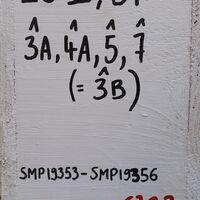 3̂A, 4̂A, 5̂, 7̂
(= 3̂B)
SMP19353-SMP19356